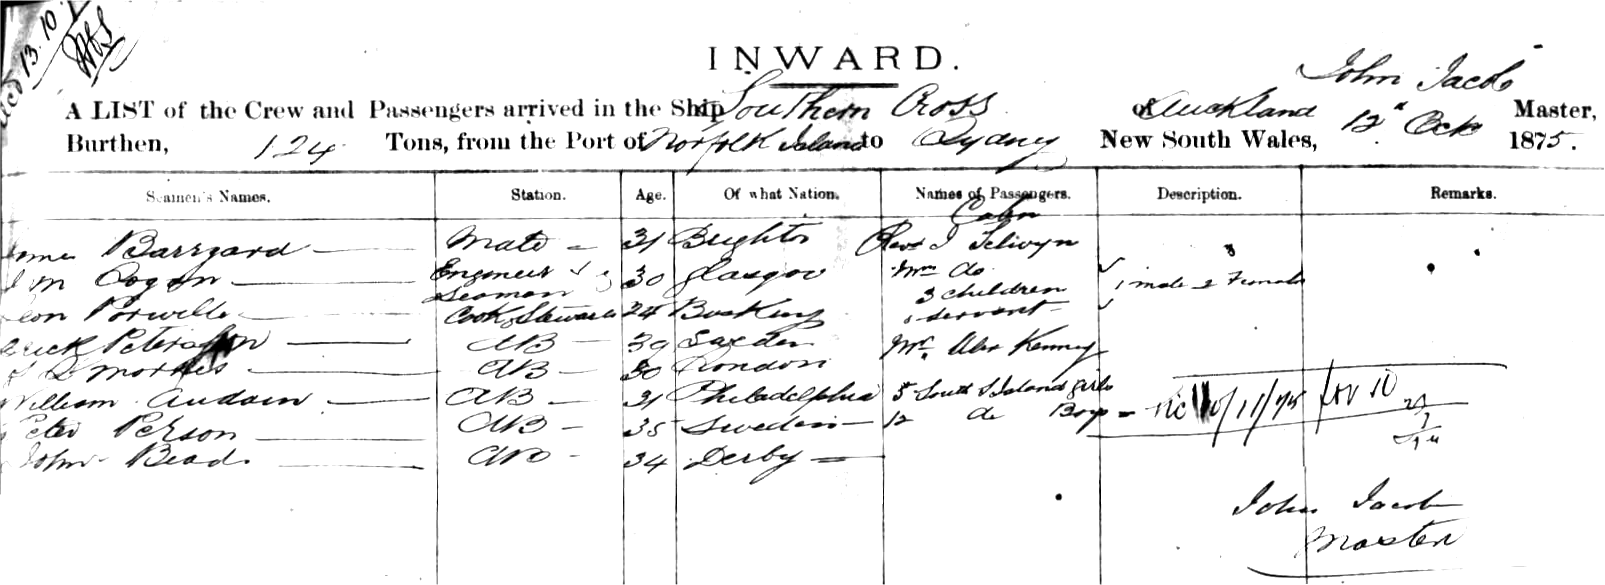 13.10
INWARD.
John Jacob
A LIST of the Crew and Passengers arrived in the Ship Southern Cross of Auckland Master,
Burthen, 124 Tons, from the Port of Norfolk Island to Sydney New South Wales, 12" Oct 1875.
Seamen's Names. Station. Age. Of what Nation. Names of Passengers. Description. Remarks.
Cabin
Barrgard Mate 31 Brighton Revd J Selwyn
Cogan Engineer & 30 Glasgow Mrs do
Seaman 3 children 1 male 2 Female
Cook & Steward 24 1 servant
Peterson AB 30 Sweden Mr. Alex Kenney
Morris AB 30 London
William Audain AB 31 Philadelphia 5 South S Island girls
Peter Person AB 35 Sweden 12 do Boys 10/11/75
John Bead AB 34 Derby
John Jacob
Master